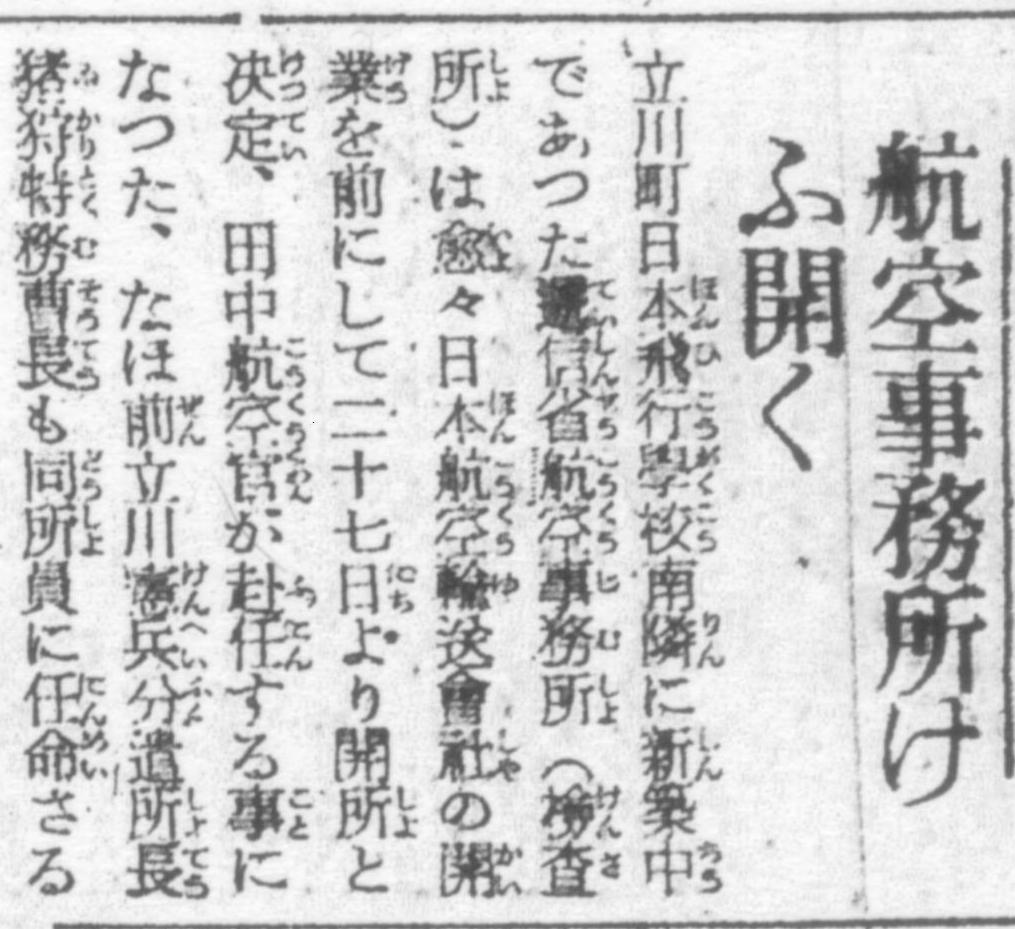 航空事務所け
ふ開く
立川町日本飛行學校南隣に新築中
であつた遞信省航空事務所（檢査
所）は愈々日本航空輸送會社の開
業を前にして二十七日より開所と
决定、田中航空官が赴任する事に
なつた、なほ前立川憲兵分遣所長
猪狩特務曹長も同所員に任命さる